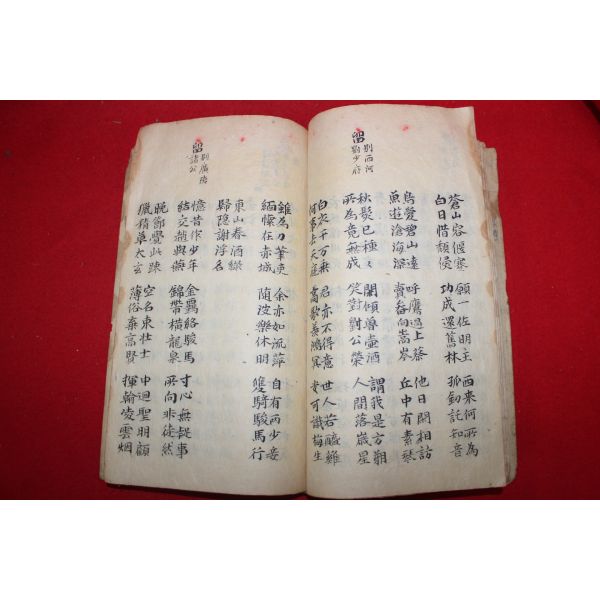 蒼山容偃蹇
白日惜頹侵
願一佐明主
功成還舊林
西來何所為
孤劍託知音
鳥愛碧山遠
魚遊滄海深
呼鷹過上蔡
賣畚向嵩岑
他日閒相訪
丘中有素琴
留別西河劉少府
秋髮已種々
所為竟無成
閒傾魯壺酒
笑對對公榮
謂我是方朔
人間落歲星
白衣千万乘
何事去天庭
君亦不得意
高歌羨鴻冥
世人若醯雞
安可識梅生
雖為刀筆吏
緬懷在赤城
余亦如流萍
隨波樂休明
自有兩少妾
雙騎駿馬行
東山春酒綠
歸隱謝浮名
留別廣陵諸公
憶昔作少年
結交趙與燕
金羈絡駿馬
錦帶橫龍泉
寸心無疑事
所向非徒然
晚節覺此疎
獵積草太玄
空名束壯士
薄俗棄高賢
中迴聖明顧
揮翰凌雲烟